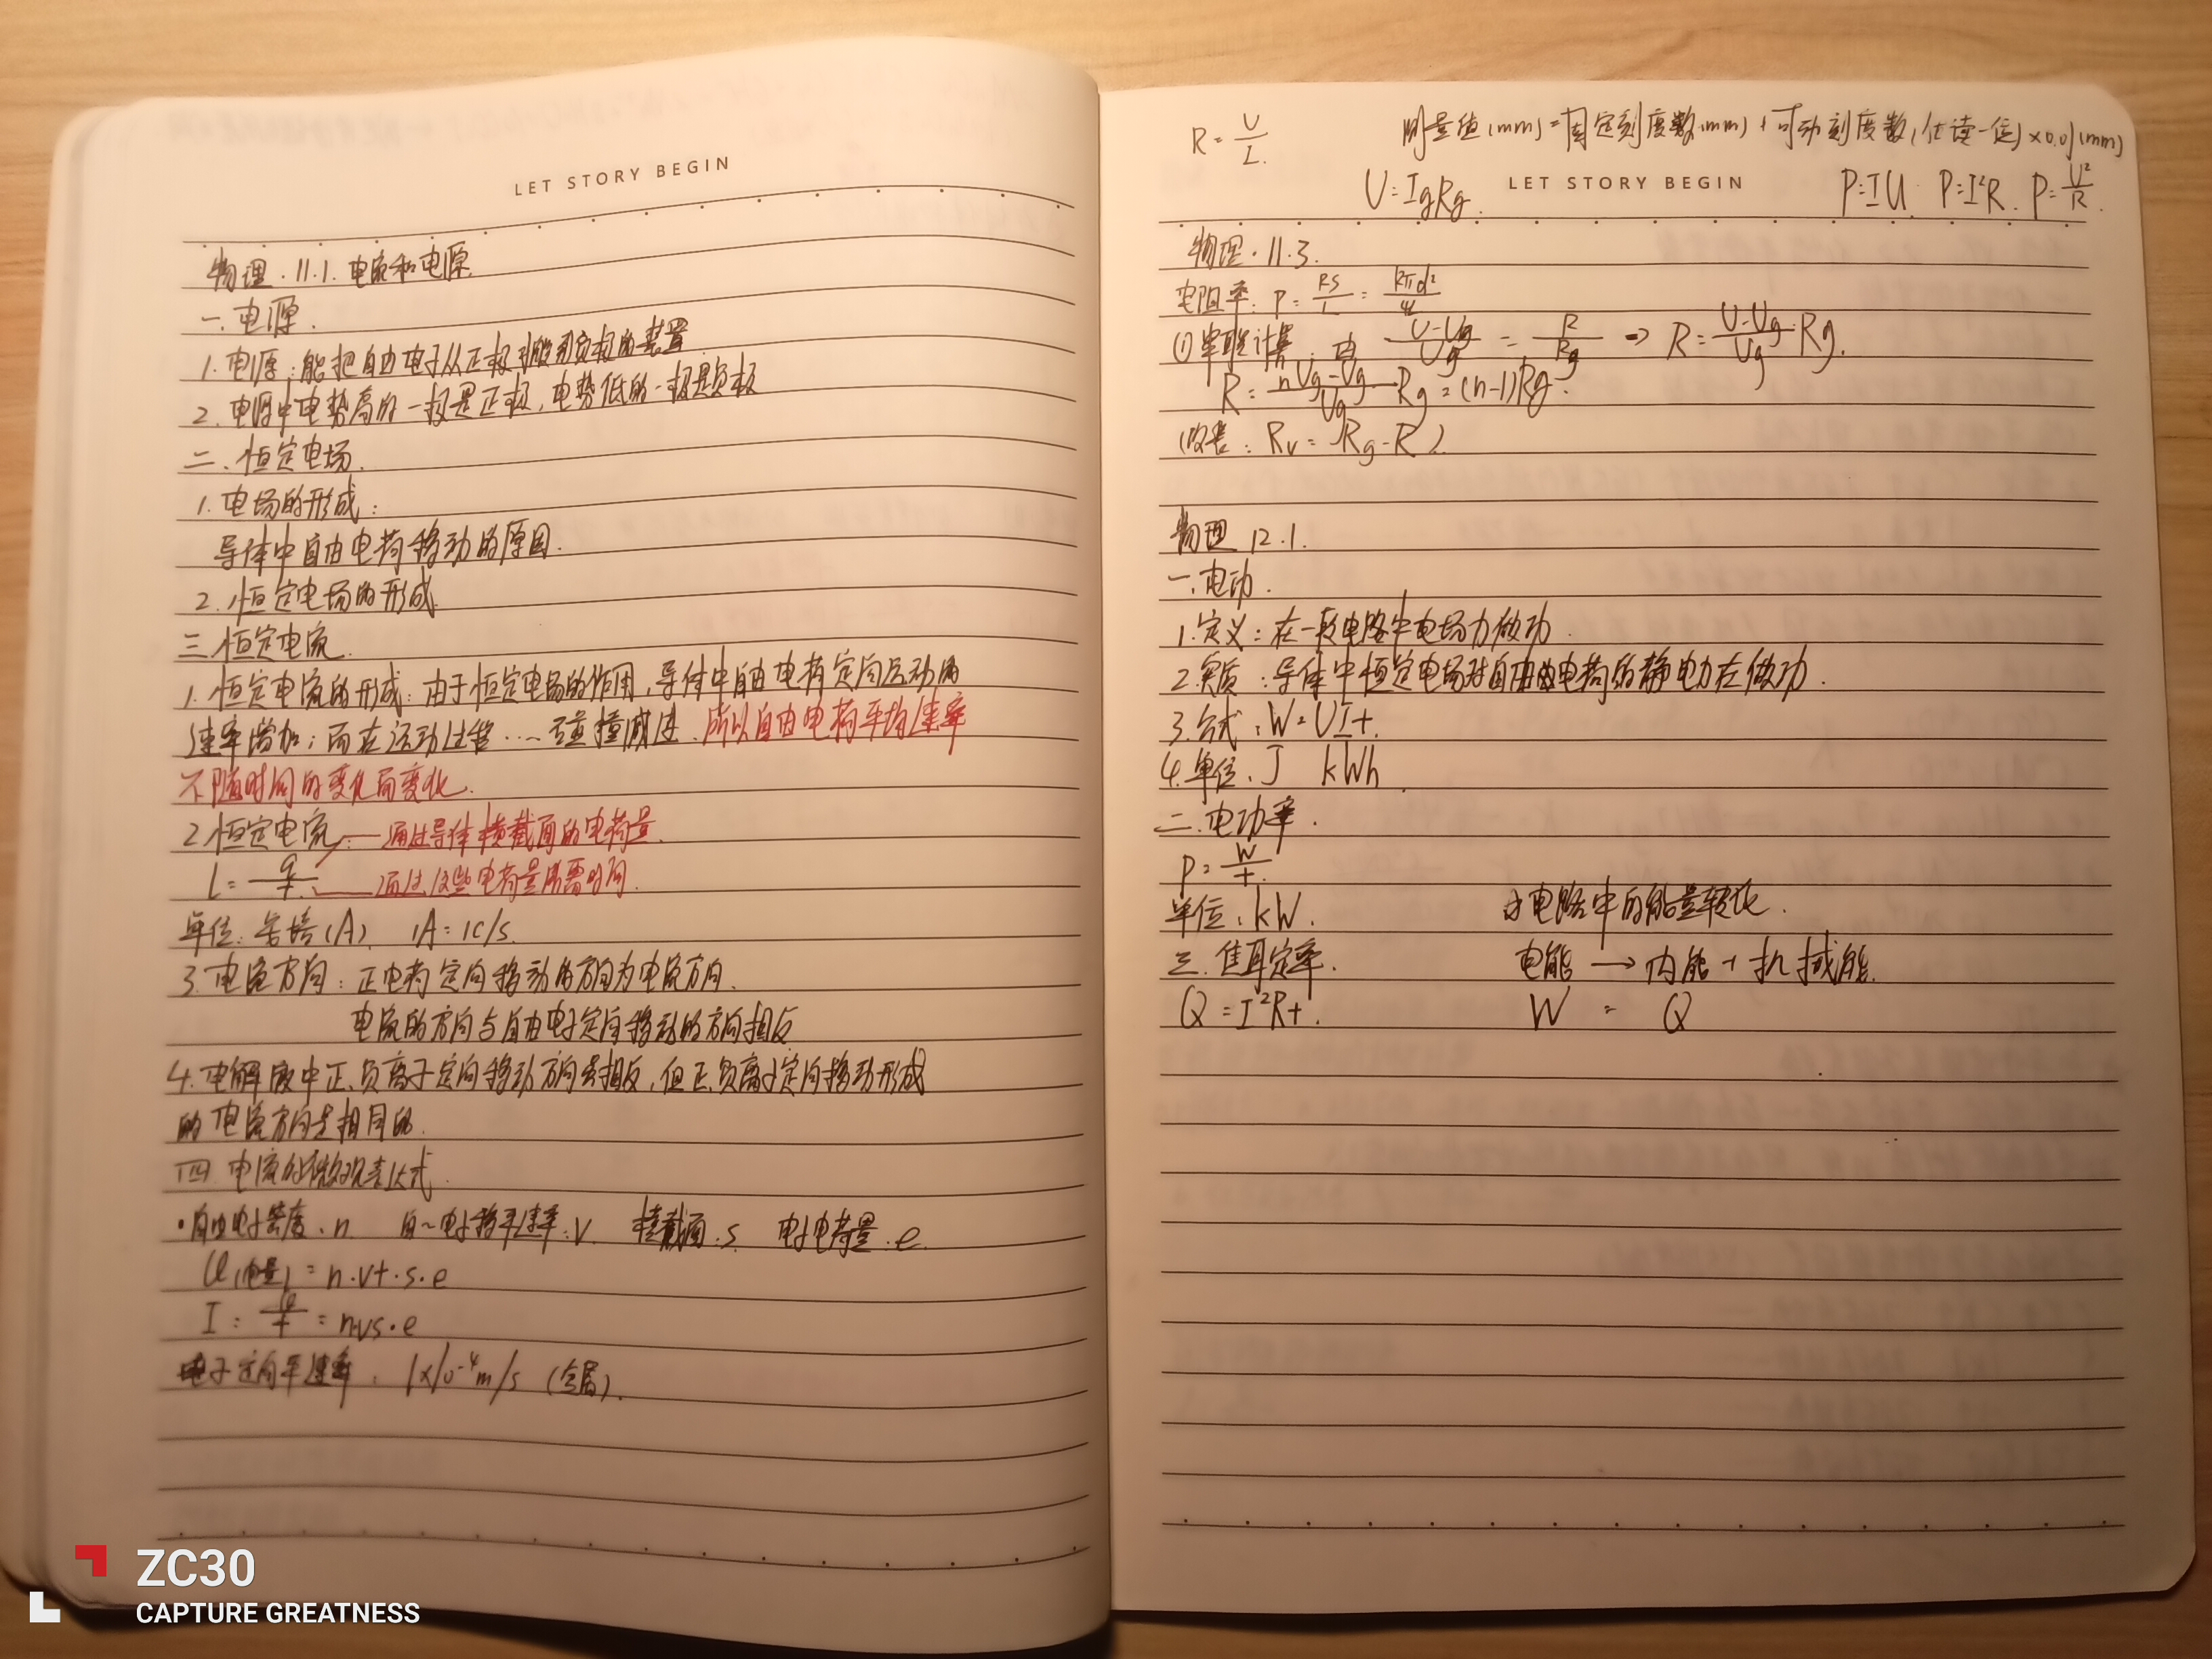 LET STORY BEGIN
物理·11.1.电流和电源
一.电源.
1.电源:能把自由电子从正极搬到负极的装置
2.电源中电势高的一极是正极,电势低的一极是负极
二.恒定电场.
1.电场的形成:
导体中自由电荷移动的原因.
2.恒定电场的形成
三.恒定电流.
1.恒定电流的形成:由于恒定电场的作用,导体中自由电荷定向运动的
速率增加;而在运动过程...碰撞减速.所以自由电荷平均速率
不随时间的变化而变化.
2.恒定电流 — 通过导体横截面的电荷量.
I = q/t — 通过这些电荷量所需时间.
单位:安培(A) 1A=1C/s.
3.电流方向:正电荷定向移动的方向为电流方向.
电流的方向与自由电子定向移动的方向相反
4.电解液中正、负离子定向移动方向虽相反,但正、负离子定向移动形成
的电流方向是相同的.
四.电流的微观表达式.
·自由电子密度:n 自~电子移平速率:v 横截面:s 电子电荷量:e
Q(电量)=n·vt·s·e
I = Q/t = nvs·e
电子定向平速率:1×10⁻⁴m/s(金属).
R = U/I.
测量值(mm)=固定刻度数(mm)+可动刻度数(估读一位)×0.01(mm)
U=IgRg. LET STORY BEGIN P=IU. P=I²R. P=U²/R.
物理·11.3.
电阻率:ρ = RS/L = Rπd²/4L
(1)串联计算:由 (U-Ug)/Ug = R/Rg ⇒ R = (U-Ug)/Ug·Rg.
R = (nUg-Ug)/Ug Rg = (n-1)Rg.
Rv = Rg-R
物理 12.1.
一.电动.
1.定义:在一段电路中电场力做功.
2.实质:导体中恒定电场对自由电荷的静电力在做功.
3.公式:W=UIt.
4.单位:J kWh
二.电功率.
P = W/t.
单位:kW. 电路中的能量转化.
三.焦耳定率. 电能→内能+机械能.
Q=I²Rt. W = Q
ZC30
CAPTURE GREATNESS